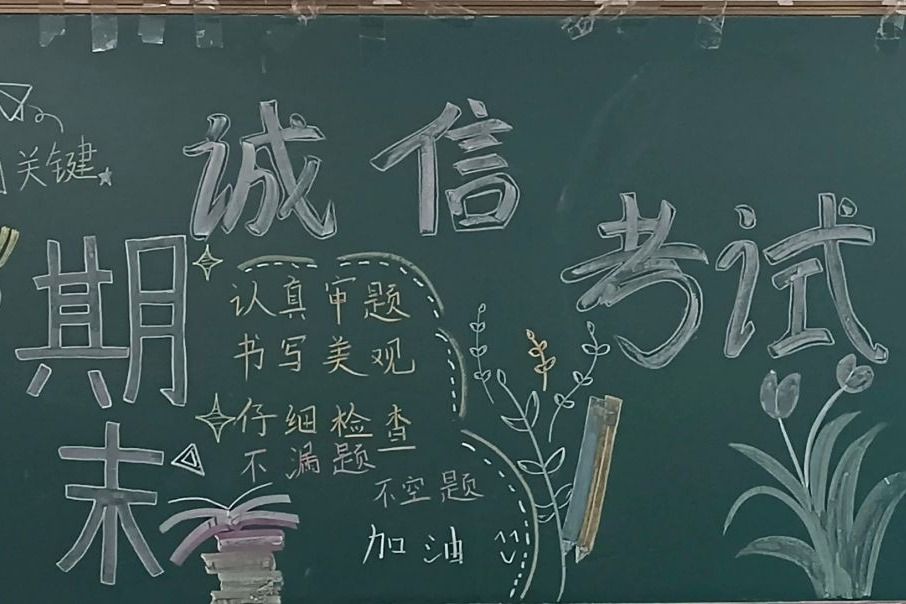 关键
诚信
考试
期末
认真审题
书写美观
仔细检查
不漏题
不空题
加油